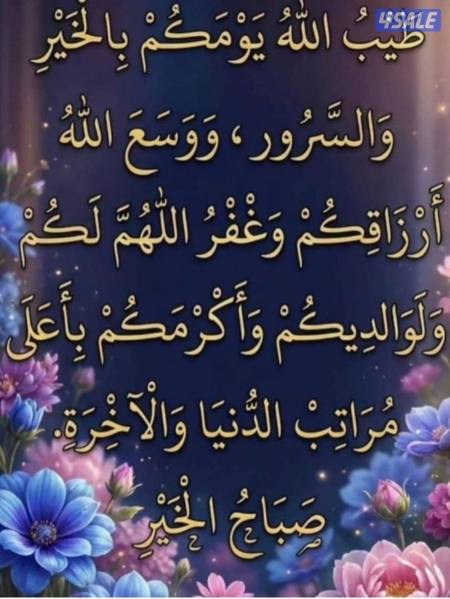 4SALE
طَيَّبُ اللهُ يَوْمَكُمْ بِالْخَيْرِ
وَالسَّرُور ، وَوَسَعَ اللهُ
أَرْزَاقِكُمْ وَغْفْرُ اللهُمَّ لَكُمْ
وَلَوَالدِيكُمْ وَأَكْرْمَكُمْ بِأَعَلَى
مُرَاتِبْ الدُّنيَا وَالْآخِْرَةِ.
صَبَاحُ الْخَيْرِ